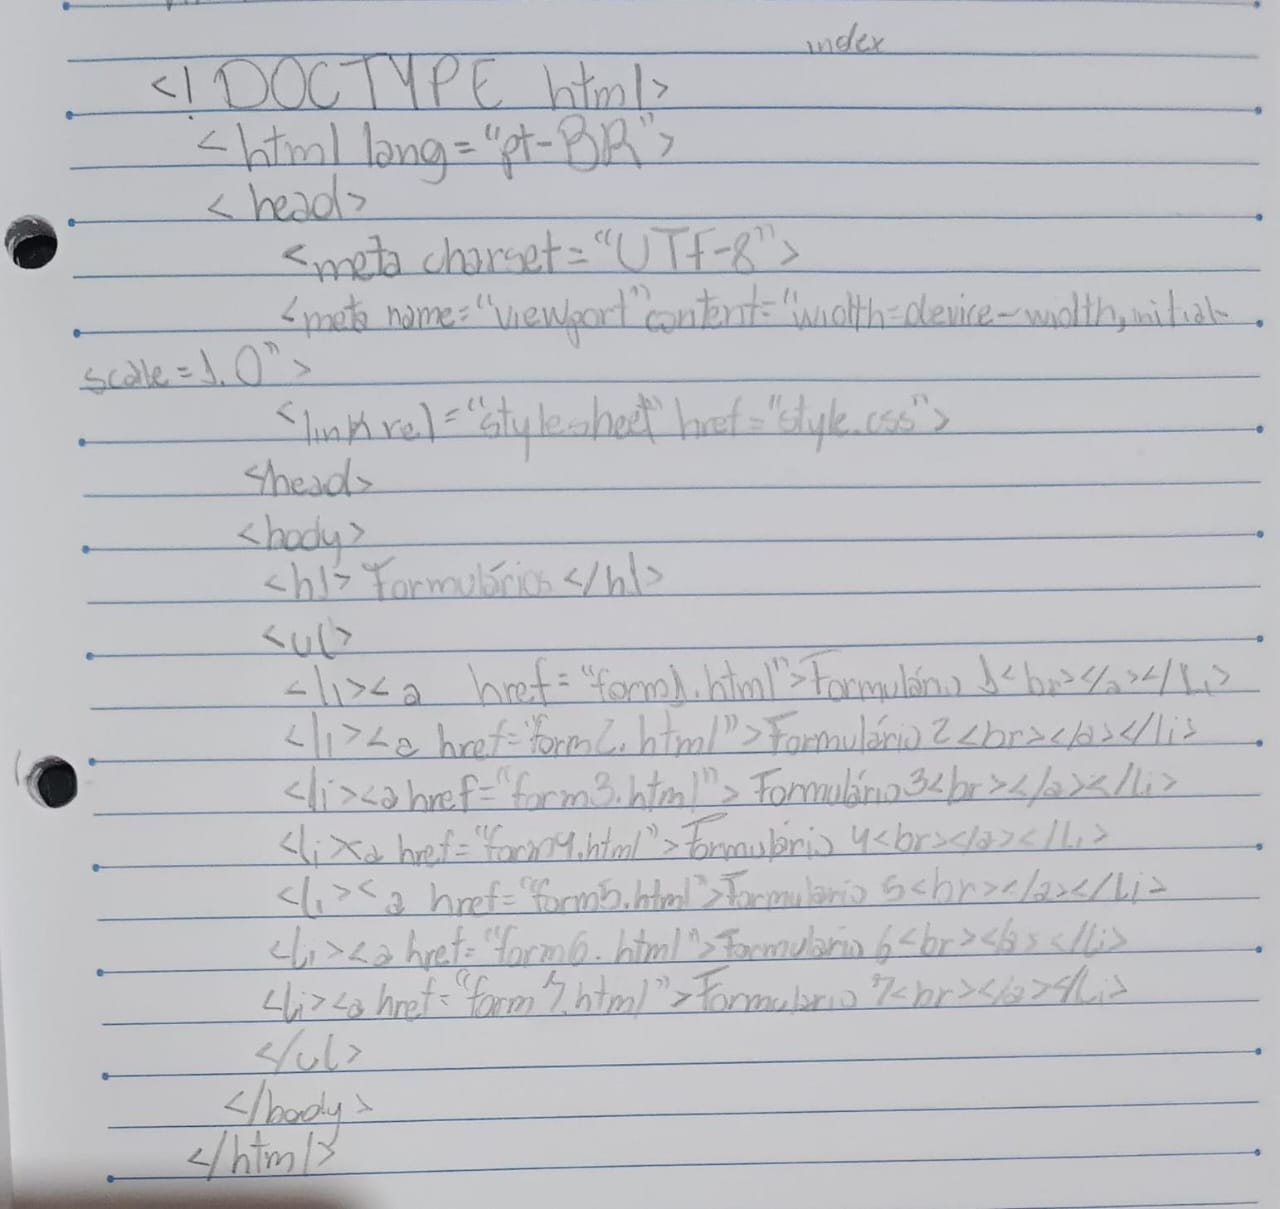 index
<!DOCTYPE html>
<html lang="pt-BR">
<head>
<meta charset="UTF-8">
<meta name="viewport" content="width=device-width, initial-
scale=1.0">
<link rel="stylesheet" href="style.css">
</head>
<body>
<h1>Formulários</h1>
<ul>
<li><a href="form1.html">Formulário 1<br></a></li>
<li><a href="form2.html">Formulário 2<br></a></li>
<li><a href="form3.html">Formulário 3<br></a></li>
<li><a href="form4.html">Formulário 4<br></a></li>
<li><a href="form5.html">Formulario 5<br></a></li>
<li><a href="form6.html">Formulario 6<br></a></li>
<li><a href="form7.html">Formulario 7<br></a></li>
</ul>
</body>
</html>